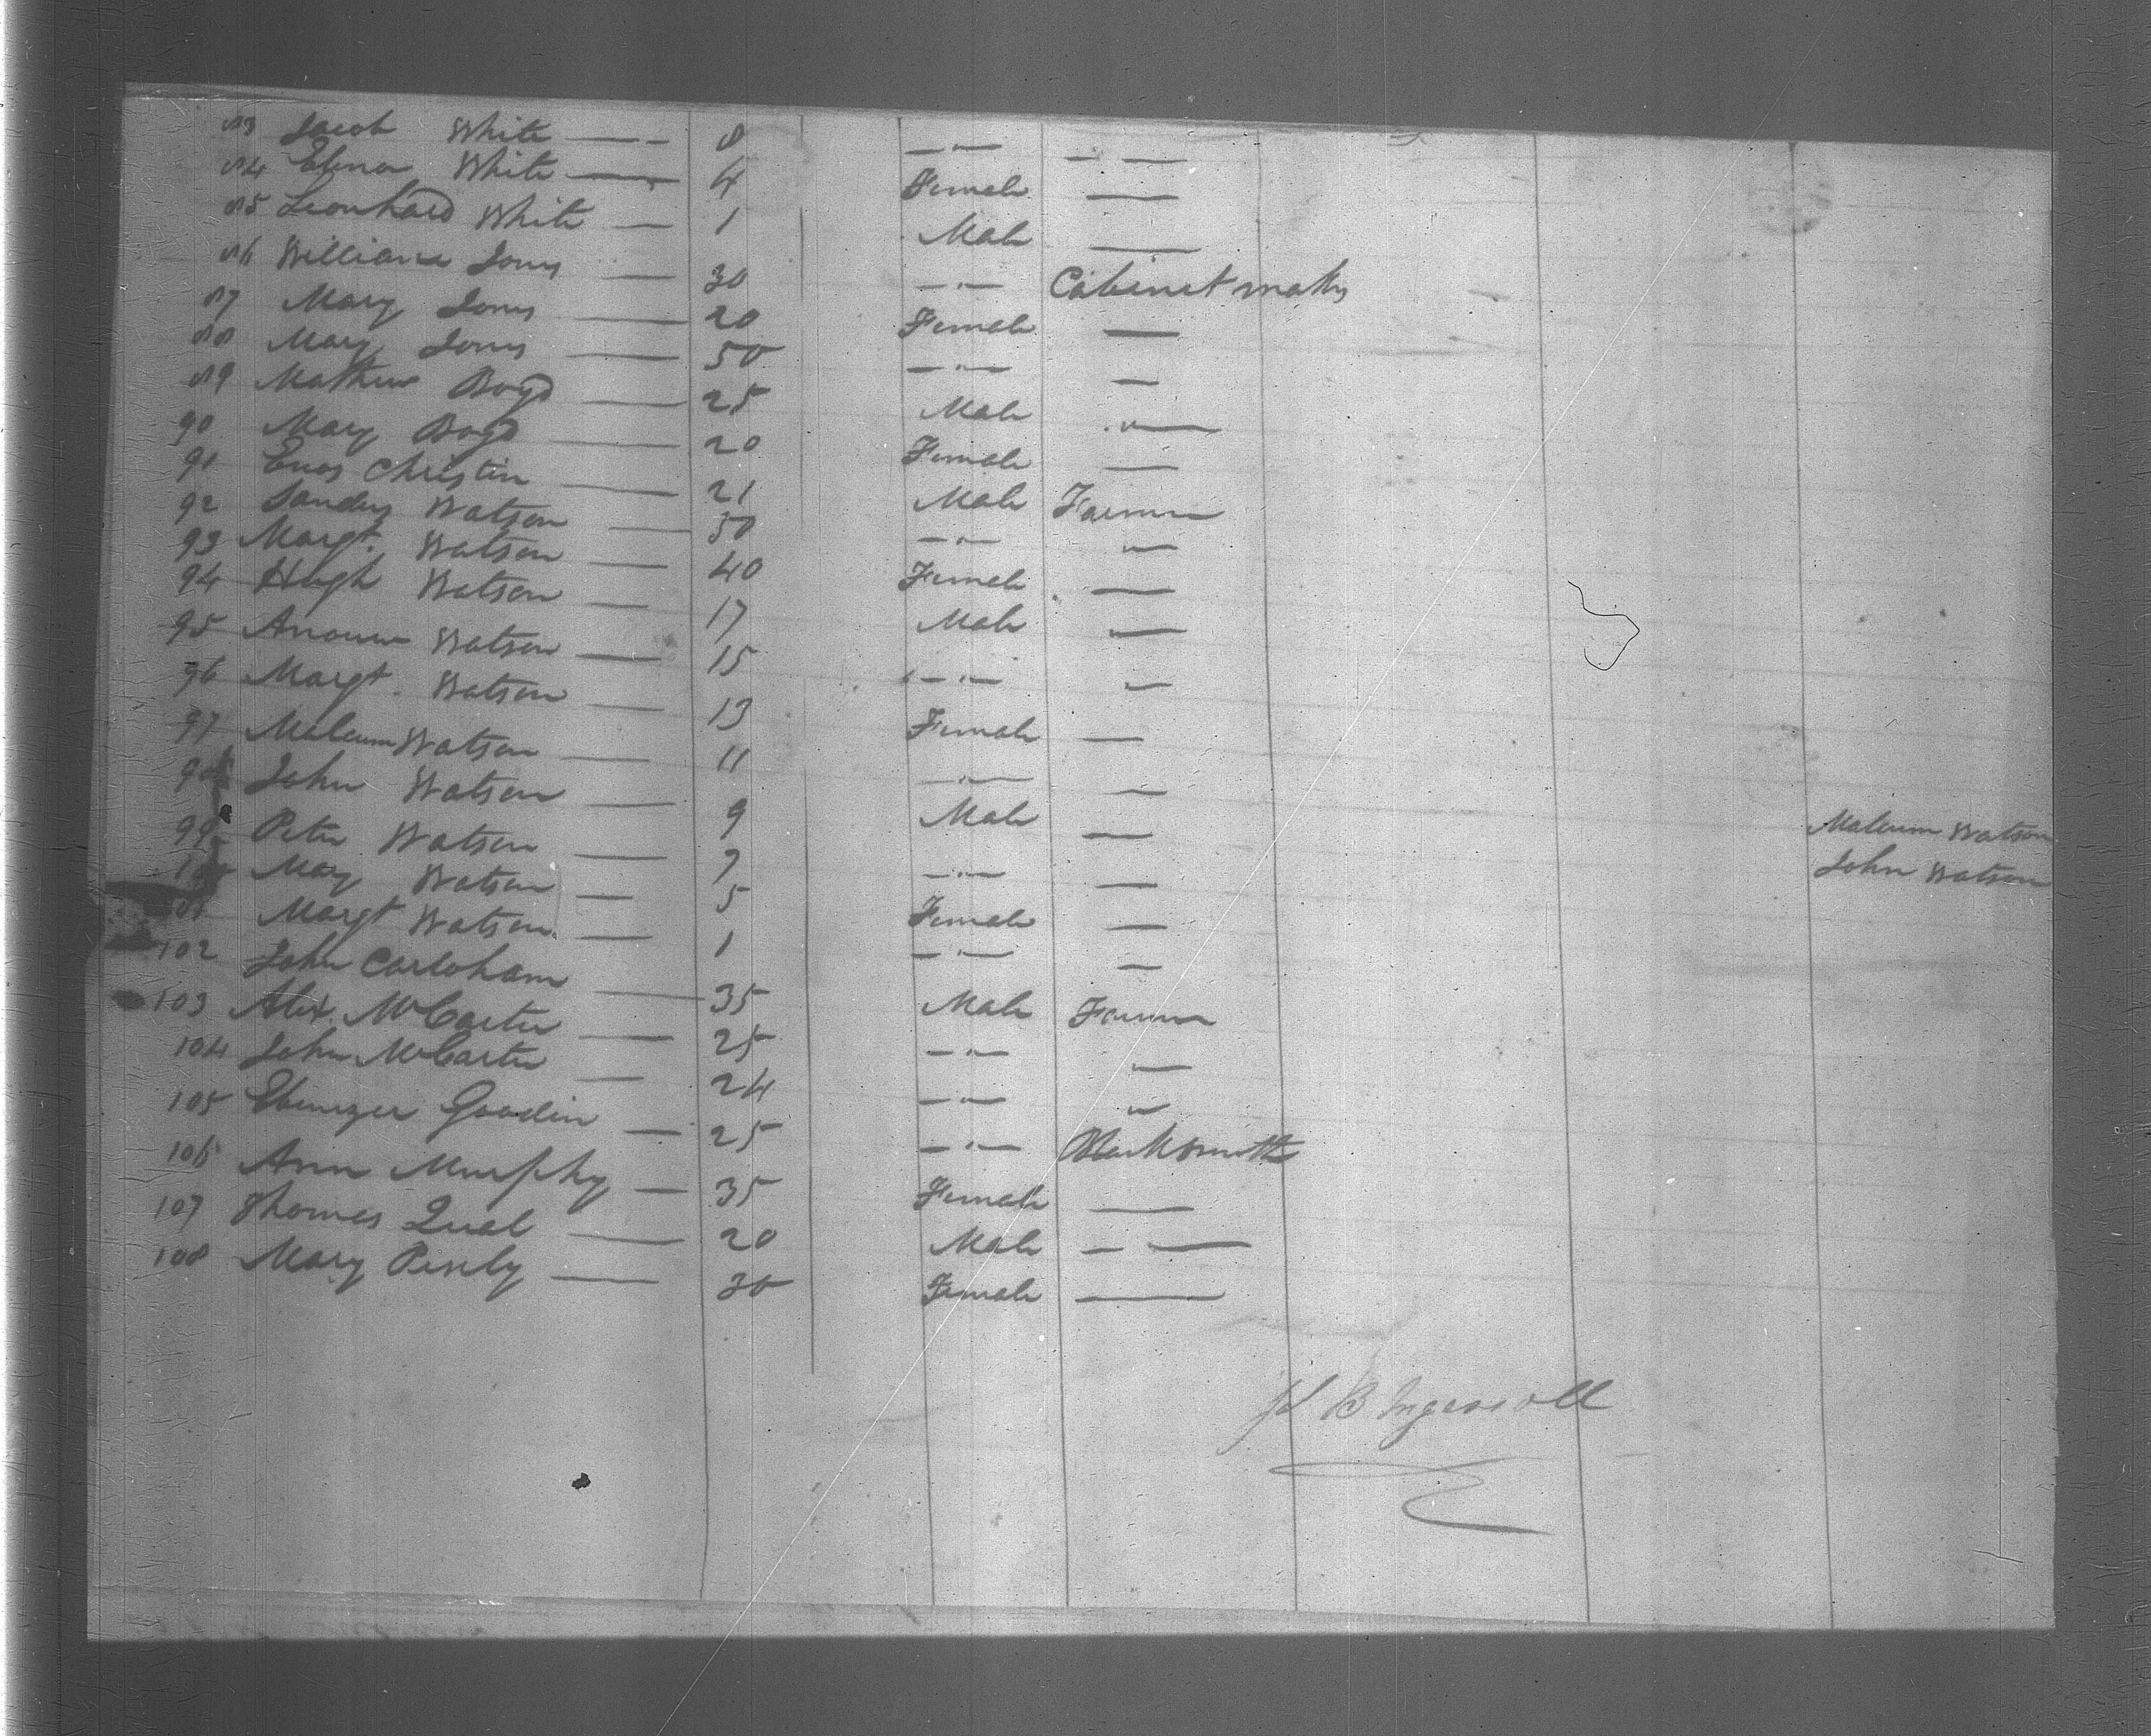 83 Jacob White — 8 — " — — —
84 Elenor White — 4 Female —
85 Leonhard White — 1 Male —
86 William Jones — 30 — " — Cabinet maker
87 Mary Jones — 20 Female —
88 Mary Jones — 50 — " — —
89 Mathew Boyd — 25 Male " —
90 Mary Boyd — 20 Female —
91 Enos Christin — 21 Male Farmer
92 Sandy Watson — 50 — " — "
93 Margt. Watson — 40 Female —
94 Hugh Watson — 17 Male —
95 Watson — 15 — " — "
96 Margt. Watson — 13 Female —
97 Malcum Watson — 11 — " — —
98 John Watson — 9 Male —
99 Peter Watson — 7 — " — —
100 Mary Watson — 5 Female —
101 Margt Watson — 1 — " — —
102 John Carloham — 35 Male Farmer
103 Alex. McCarter — 25 — " — "
104 John McCarter — 24 — " — "
105 Ebenezer Goodin — 25 — " — Blacksmith
106 Ann Murphy — 35 Female —
107 Thomas Qual — 20 Male — —
108 Mary — 30 Female —
Malcum Watson
John Watson
B Ingersoll